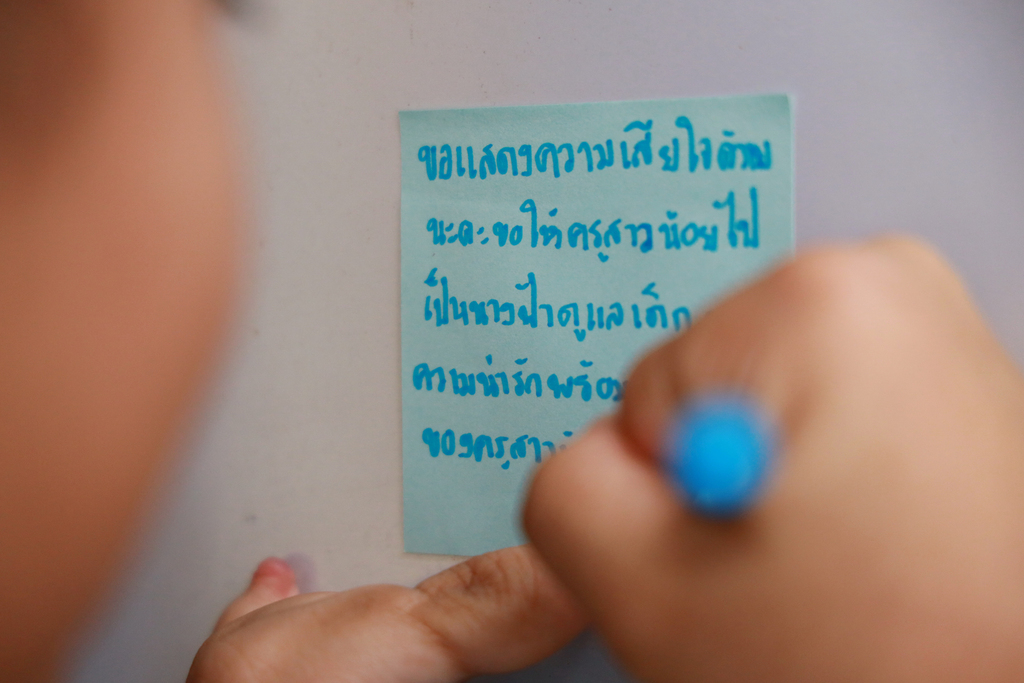 ขอแสดงความเสียใจด้วย
นะคะขอให้ครูสาวน้อยไป
เป็นนางฟ้าดูแลเด็ก
ความน่ารักพร้อม
ของครูสาว